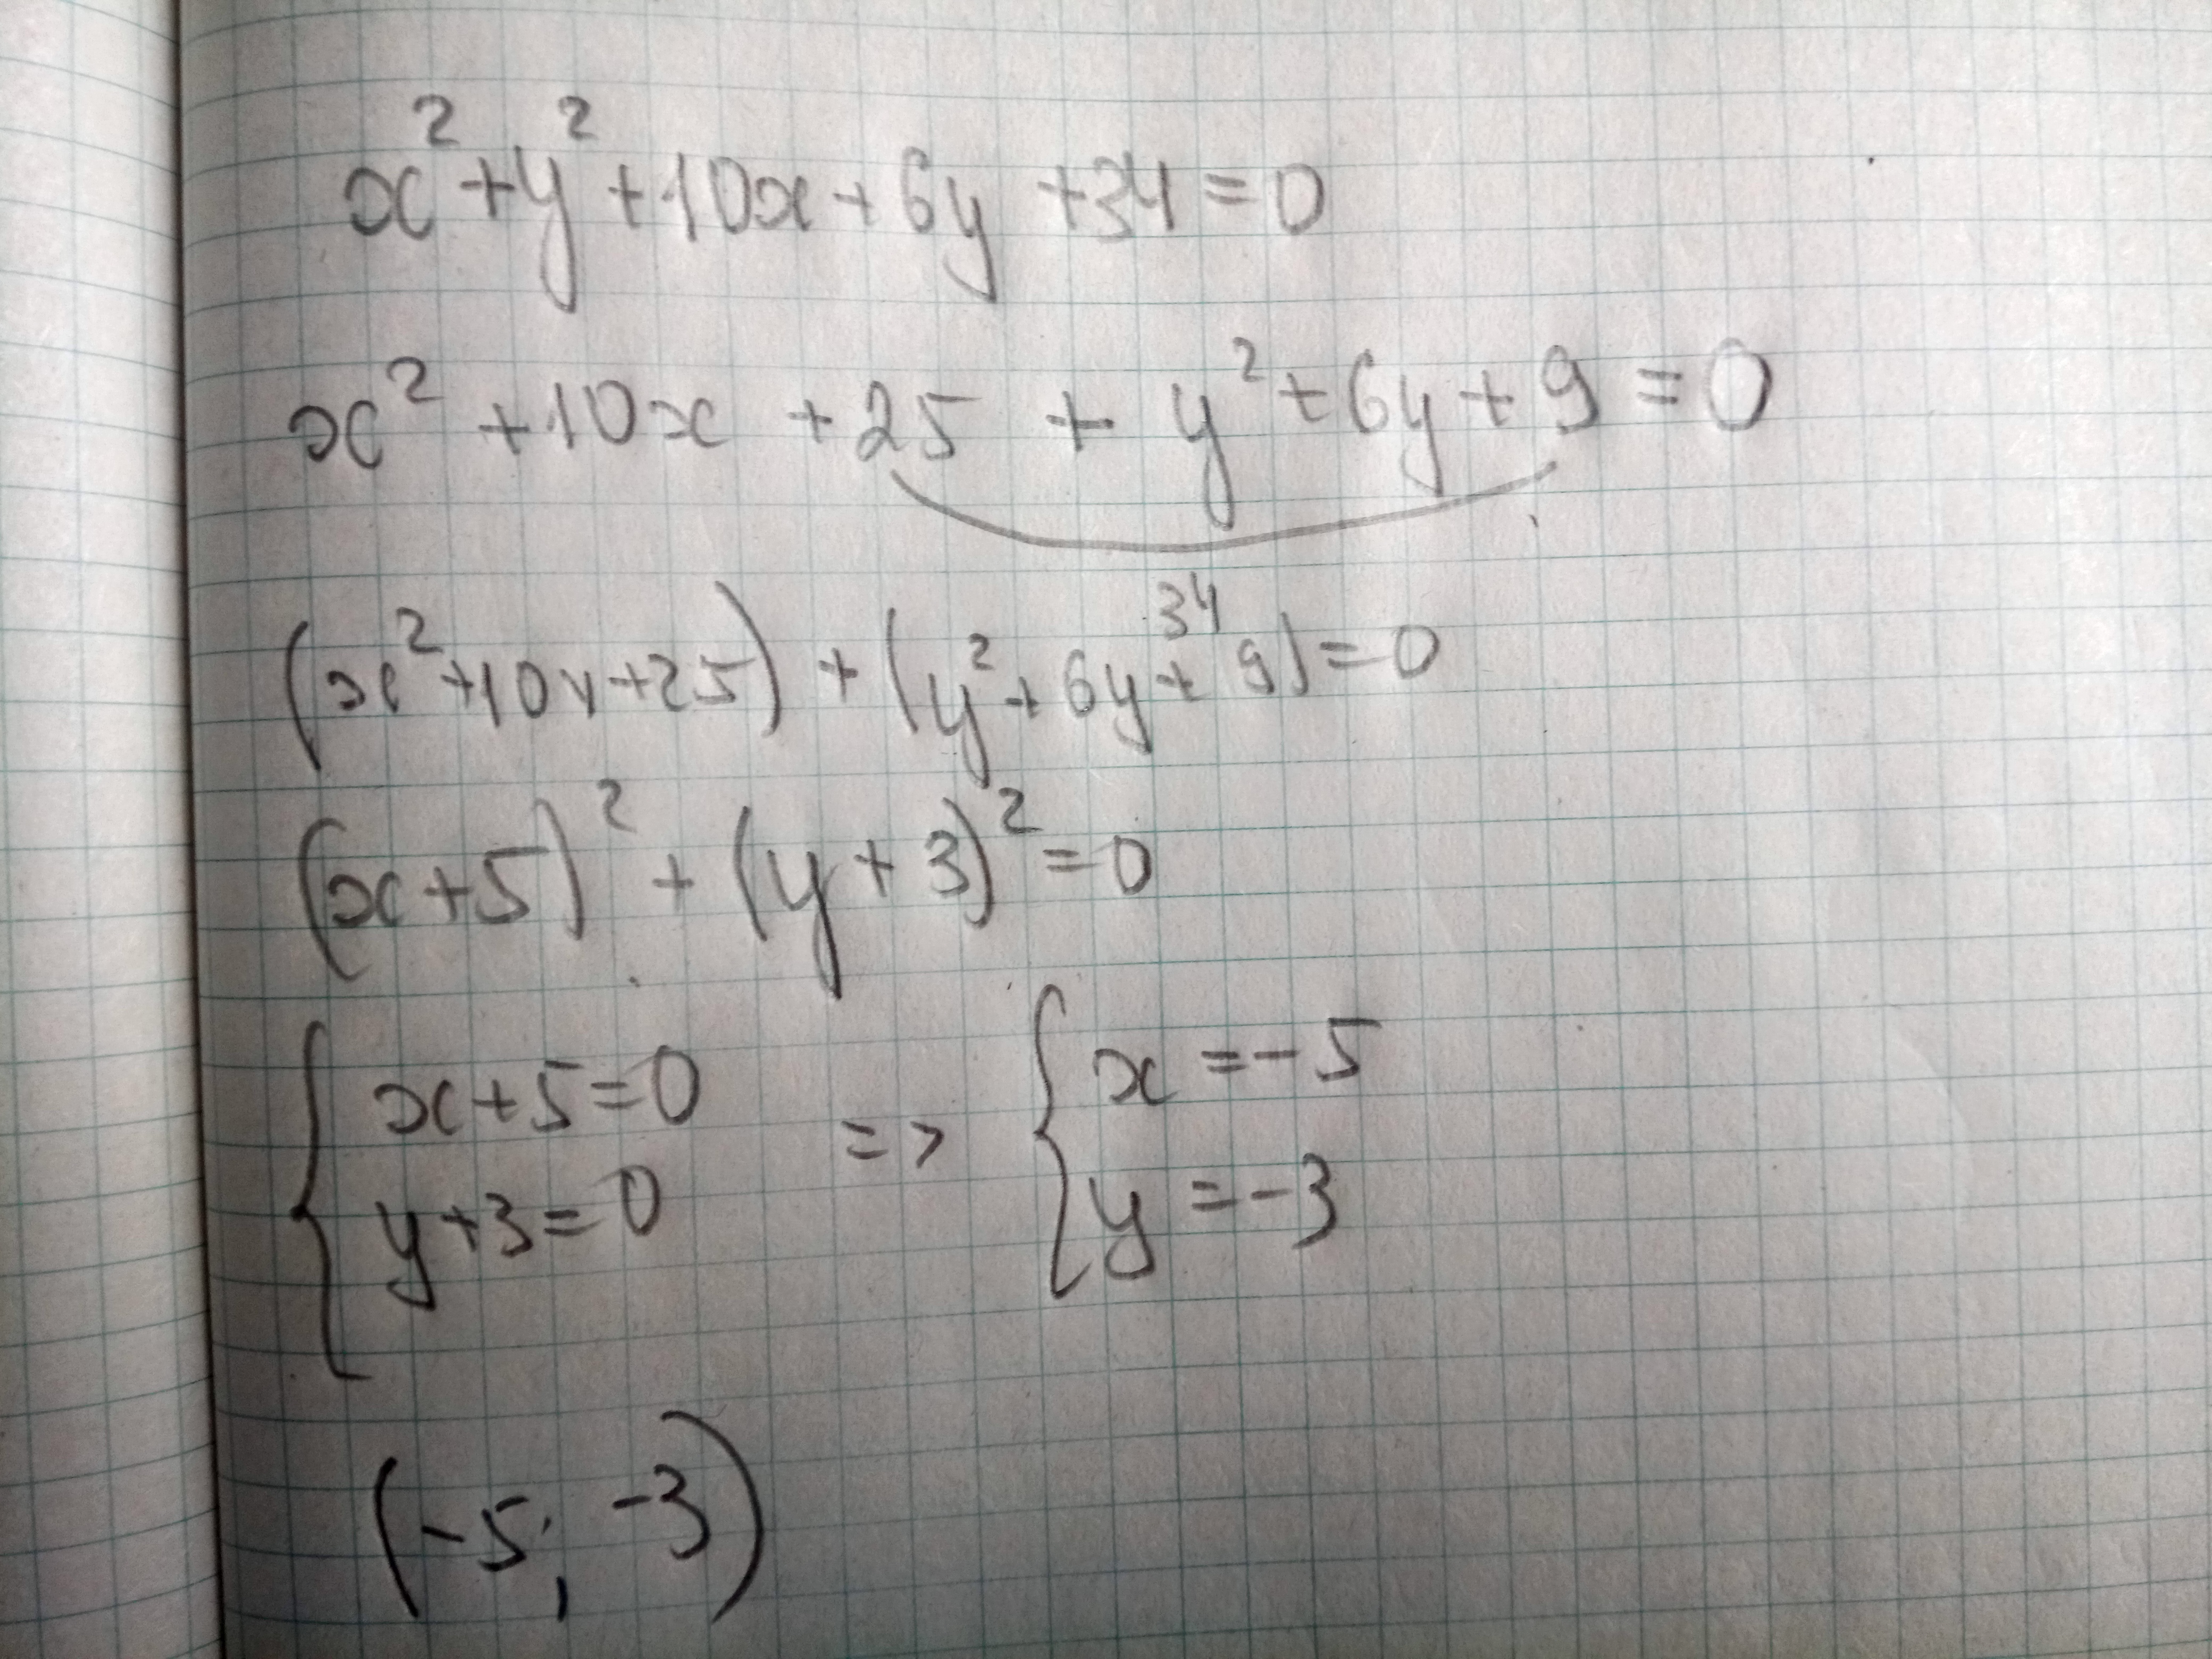 x² + y² + 10x + 6y + 34 = 0
x² + 10x + 25 + y² + 6y + 9 = 0
34
(x² + 10x + 25) + (y² + 6y + 9) = 0
(x + 5)² + (y + 3)² = 0
{ x + 5 = 0 => { x = -5
y + 3 = 0 y = -3
(-5; -3)